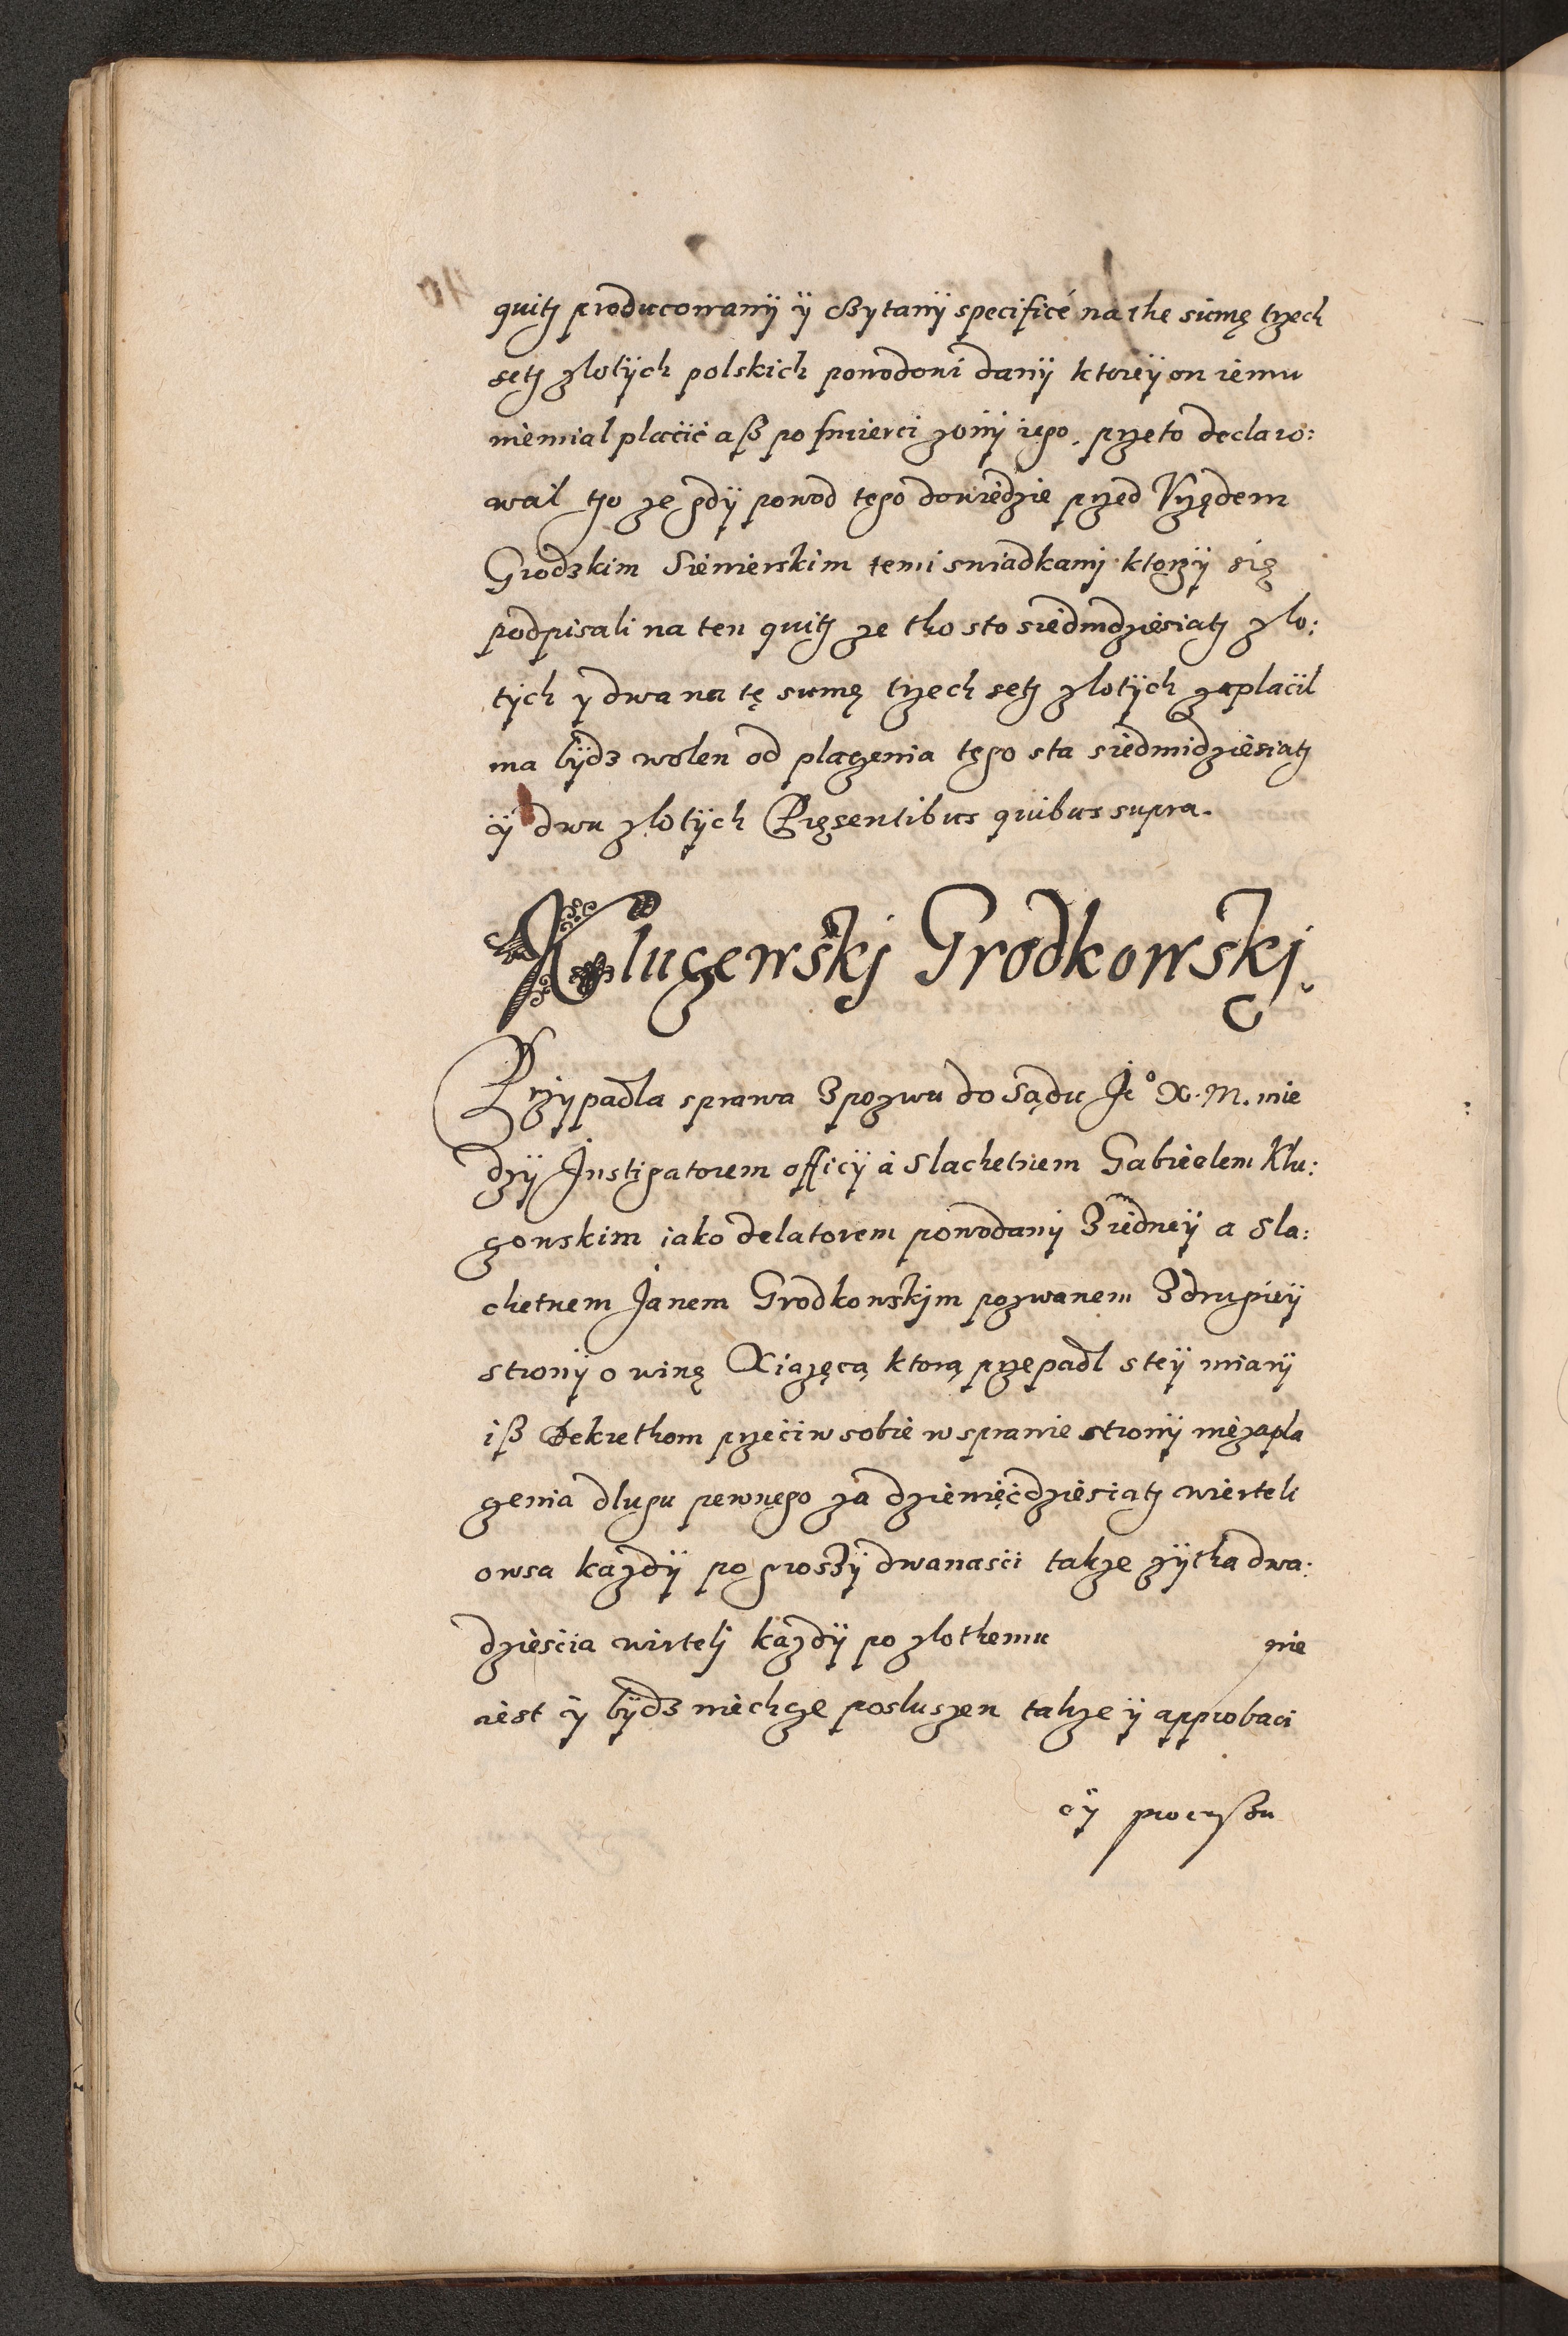 quitz producowanÿ ÿ cżytanÿ specificé na the sumę trzech
setz złotÿch polskich powodowi danÿ ktoreÿ on iemu
niemial płacić aß po smierci zonÿ iego, przeto declaro:
wal tgo ze gdÿ powod tego dowiedzie przed Vrzędem
Grodzkim Siewierskim temi swiadkamj ktorzÿ się
podpisali na ten quitz ze tho sto siedmdziesiatz zlo:
tÿch ÿ dwa na tę sumę trzech setz zlotÿch zaplacil
ma bÿdz wolen od placzenia tego sta siedmidziesiatz
ÿ dwu zlotÿch Pręsentibus quibus supra.
Kluczewskj Grodkowskj.
Przÿpadla sprawa z pozwu do Sądu Je° X. M. mie
dzÿ Instigatorem officÿ a slachetnem Gabrielem Klu:
czowskim iako delatorem powodamj z iedneÿ a sla:
chetnem Janem Grodkowskjm pozwanem z drugieÿ
stronÿ o winę Xiązęcą ktorą przepadl s teÿ miarÿ
iß Dekrethom przeciw sobie w sprawie stronÿ niezapla
czenia dlugu pewnego za dziewięćdziesiatz wierteli
owsa kazdÿ po groszÿ dwanasci takze zÿtha dwa:
dziescia wirtelj kazdÿ po zlothemu nie
iest ÿ bÿdz niechcze posluszen takze ÿ approbaci
ÿ processu